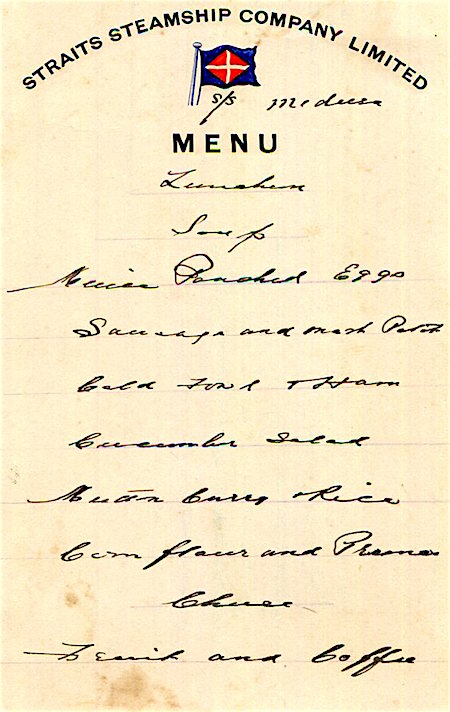 STRAITS STEAMSHIP COMPANY LIMITED
s/s Medusa
MENU
Luncheon
Soup
Poached Eggs
Sausage and Mash Potat
Cold Fowl & Ham
Cucumber Salad
Mutton Curry & Rice
Corn flour and Prunes
Cheese
Fruit and Coffee